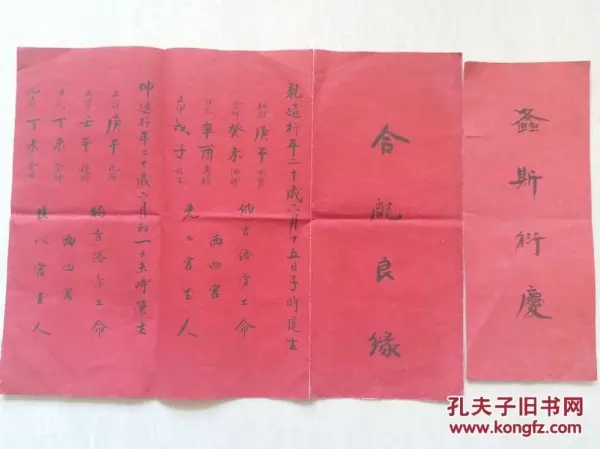 螽斯衍慶
合配良緣
乾造行年二十歲六月十五日子時建生
庚午
癸未
辛酉
戊子
納音路旁土命
西四宮
兌七宮生人
坤造行年二十歲六月初一日未時
庚午
壬午
丁未
丁未
納音路旁土命
西四宮
艮八宮生人
孔夫子旧书网
www.kongfz.com